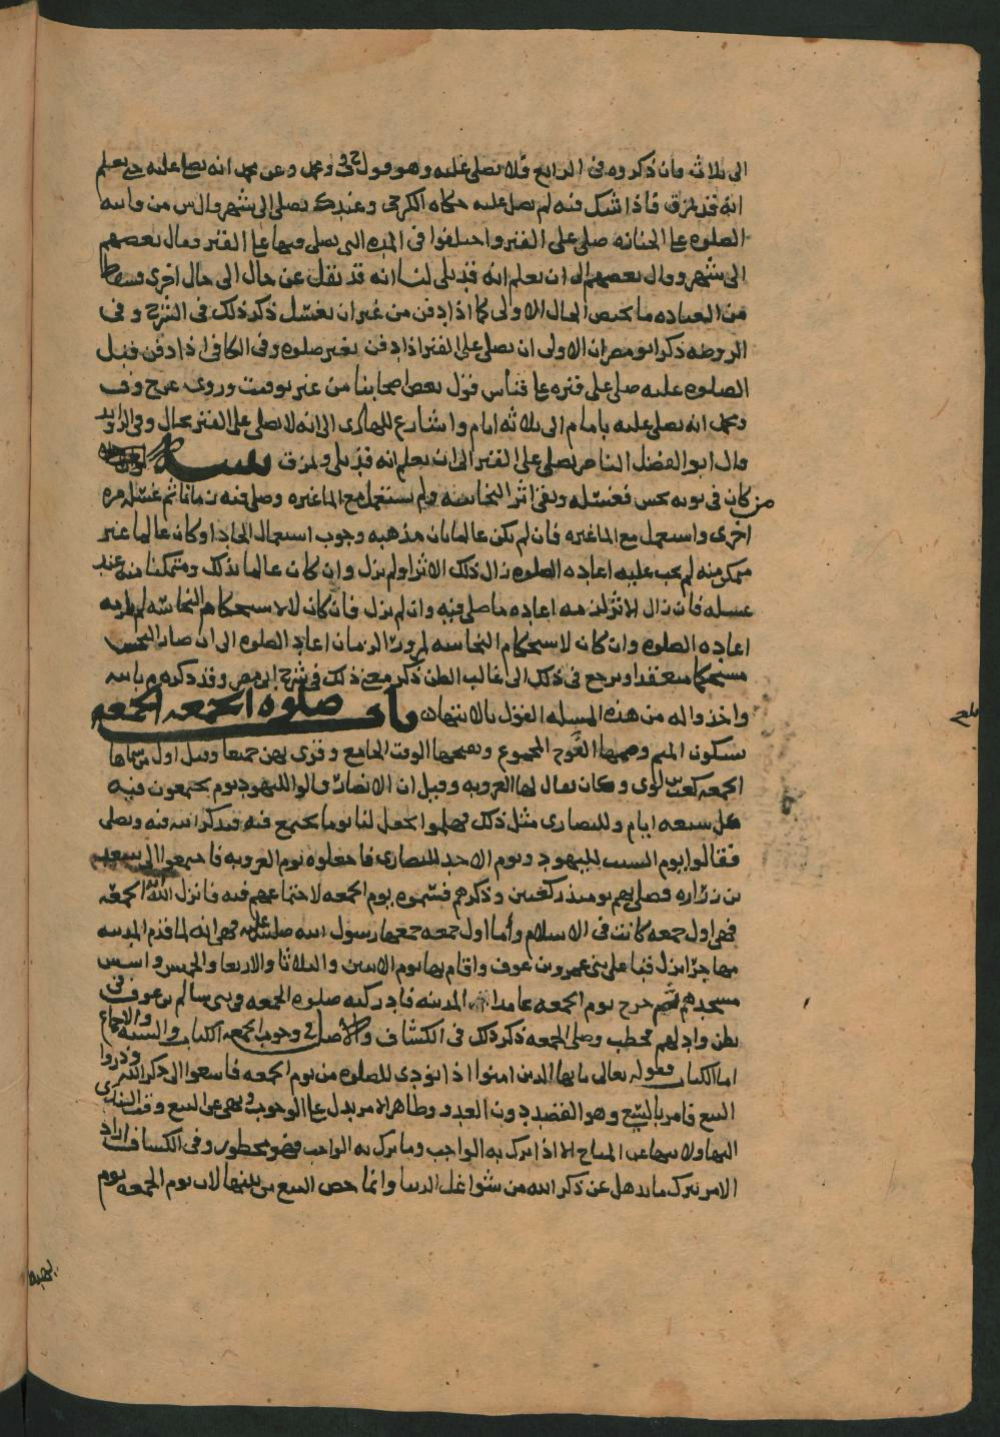 الى ثلاثة فان ذكروه في الرابع فلا يصلى عليه وهو قول ومحمد وعن محمد انه يصلى عليه حتى يعلم
انه قد تمزق فاذا شك فيه لم يصل عليه حكاه الكرخي وعند ك يصلى الى شهر وقال من فاتته
الصلوة على الجنازة صلى على القبر واختلفوا في المدة التي يصلى فيها على القبر فقال بعضهم
الى شهر وقال بعضهم الى ان يعلم انه قد بلى لنا انه قد نقل عن حال الى حال اخرى وسقط
من العبادة ما يختص الحال الاولى كما اذا دفن من غير ان يغسل ذكر ذلك في الشرح وفي
الروضة ذكر ابو مضر ان الاولى ان يصلى على القبر اذا دفن بغير صلوة وفي الكافي اذا دفن قبل
الصلوة عليه صلي على قبره على قياس قول بعض اصحابنا من غير توقيت وروى عن ح وف
ومحمد انه يصلى عليه بامام الى ثلاثة ايام واشار ع للهادي الى انه لا يصلى على القبر بحال وفي الزوايد
قال ابو الفضل الناصر يصلى على القبر الى ان يعلم انه قد بلى وتمزق مسئلة
من كان في ثوبه نجس فغسله وبقى اثر النجاسة ولم يستعمل مع الماء غيره وصلى فيه زمانا ثم غسله مرة
اخرى واستعمل مع الماء غيره فان لم يكن عالما بان مذهبه وجوب استعمال الحاد او كان عالما غير
متمكن منه لم يجب عليه اعادة الصلوة زال ذلك الاثر او لم يزل وان كان عالما بذلك ومتمكنا منه عند
غسله فان زال الاثر لزمه اعادة ما صلى فيه وان لم يزل فان كان لا لاستحكام النجاسة لم يلزمه
اعادة الصلوة وان كان لاستحكام النجاسة لمرور الزمان اعاد الصلوة الى ان صار النجس
مستحكما منعقدا ويرجع في ذلك الى غالب الظن ذكر معنى ذلك في شرح ابي مضر وقد ذكره م بالله
واخذ واله من هذه المسئلة القول بالانتهاء باب صلوة الجمعة الجمعة
بسكون الميم وضمها الفوج المجموع وبفتحها الوقت الجامع وقرى بهن جميعا وقيل اول من سماها
الجمعة كعب بن لوى وكان يقال لها العروبة وقيل ان الانصار قالوا لليهود يوم يجتمعون فيه
كل سبعة ايام وللنصارى مثل ذلك فهلموا نجعل لنا يوما نجتمع فيه فنذكر الله فيه ونصلى
فقالوا يوم السبت لليهود ويوم الاحد للنصارى فاجعلوه يوم العروبة فاجتمعوا الى سعد
بن زرارة فصلى بهم يومئذ ركعتين وذكرهم فسموه يوم الجمعة لاجتماعهم فيه فانزل الله آية الجمعة
فهي اول جمعة كانت في الاسلام وأما اول جمعة جمعها رسول الله صلى الله عليه فهي انه لما قدم المدينة
مهاجرا نزل قبا على بني عمرو بن عوف واقام بها يوم الاثنين والثلاثا والاربعا والخميس واسس
مسجدهم ثم خرج يوم الجمعة عامدا المدينة فادركته صلوة الجمعة في بني سالم بن عوف في
بطن واد لهم فخطب وصلى الجمعة ذكر ذلك في الكشاف والاصل في وجوب الجمعة الكتاب والسنة والاجماع
اما الكتاب فقوله تعالى يا ايها الذين امنوا اذا نودي للصلوة من يوم الجمعة فاسعوا الى ذكر الله وذروا
البيع فامر بالسعي وهو القصد دون العدو وظاهر الامر يدل على الوجوب ونهى عن البيع وقت النداء
اليها ولا ينهى عن المباح الا اذا ترك به الواجب وما ترك به الواجب فهو محظور وفي الكشاف اراد
الامر بترك ما يذهل عن ذكر الله من شواغل الدنيا وانما خص البيع من بينها لان يوم الجمعة يوم